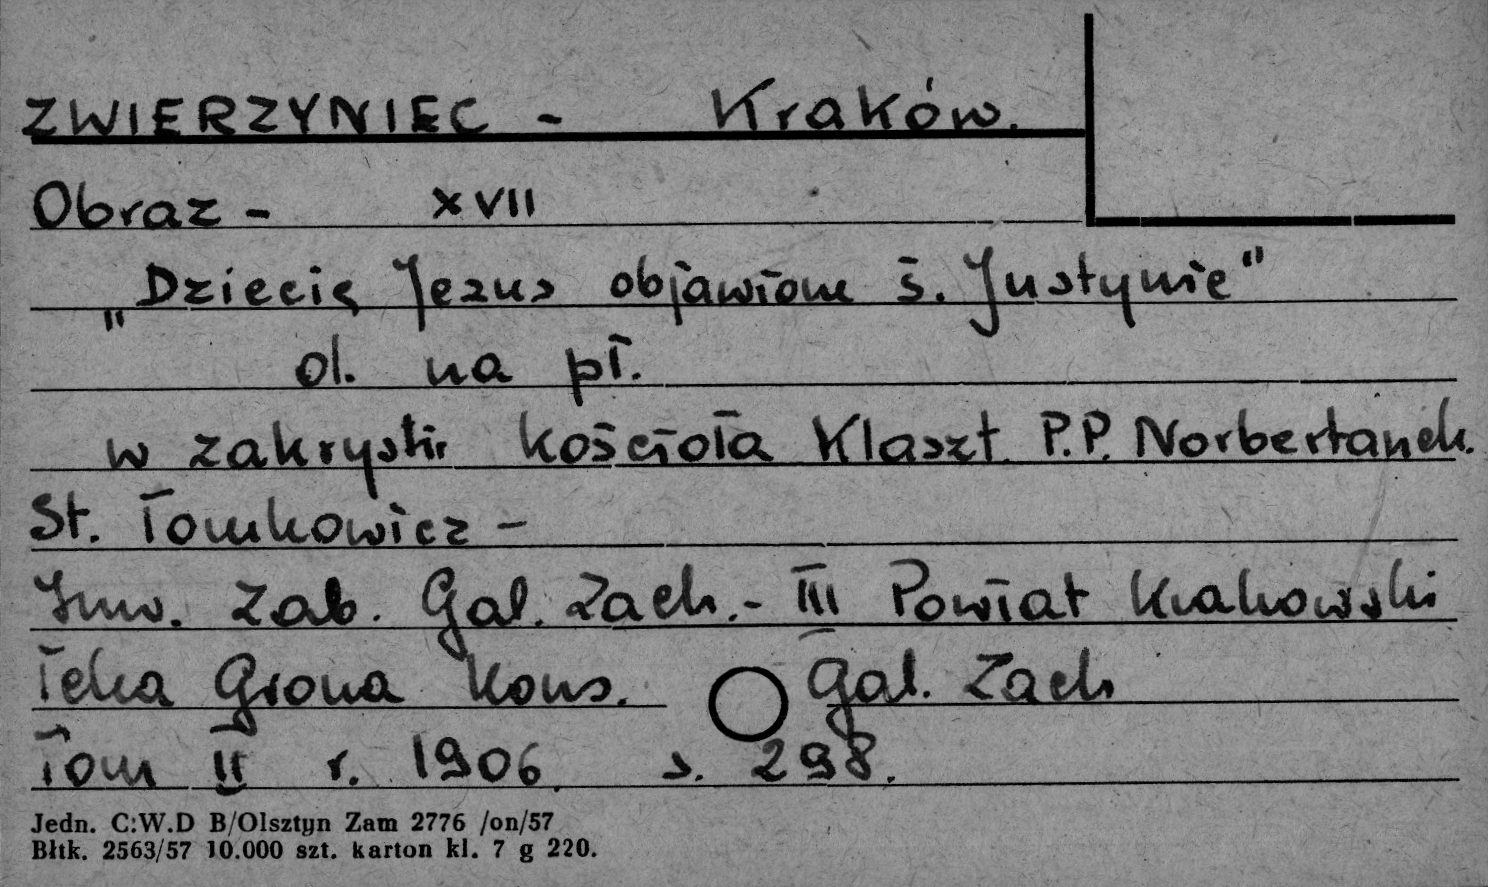 ZWIERZYNIEC - Kraków.
Obraz - XVII
"Dziecię Jezus objawione ś. Justynie"
ol. na pł.
w zakrystii kościoła Klaszt. P.P. Norbertanek.
St. Tomkowicz -
Inw. Zab. Gal. Zach. - III Powiat Krakowski
Teka Grona Kons. Gal. Zach
Tom II r. 1906. s. 298.
Jedn. C:W.D B/Olsztyn Zam 2776 /on/57
Błtk. 2563/57 10.000 szt. karton kl. 7 g 220.